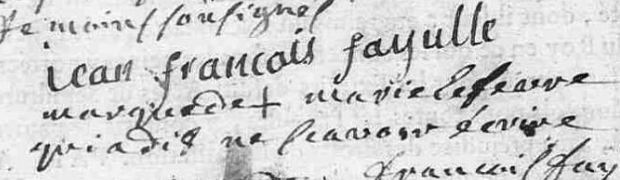 temoins soussignes
iean francois fayulle
marque de + marie lefevre
qui a dit ne scavoir écrire
francois fay